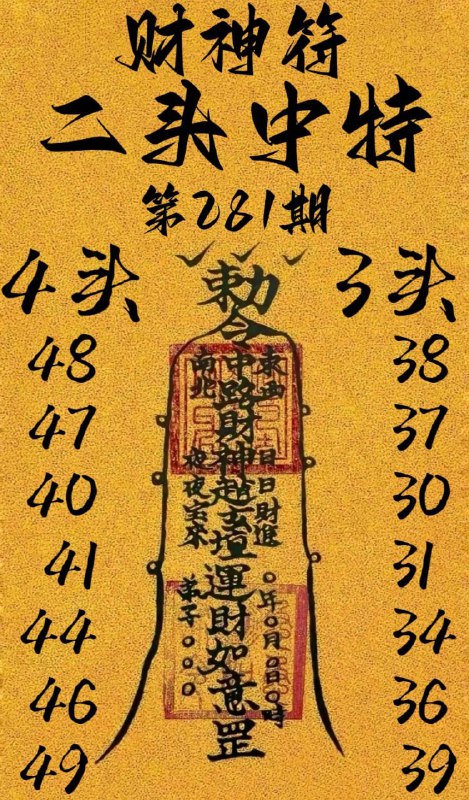 财神符
二头中特
第281期
4头 3头
48 38
47 37
40 30
41 31
44 34
46 36
49 39
勅令
東西 南北
中路財神趙玄壇運財如意罡
日日財進
夜夜宝来
〇年〇月〇日〇時
弟子〇〇〇